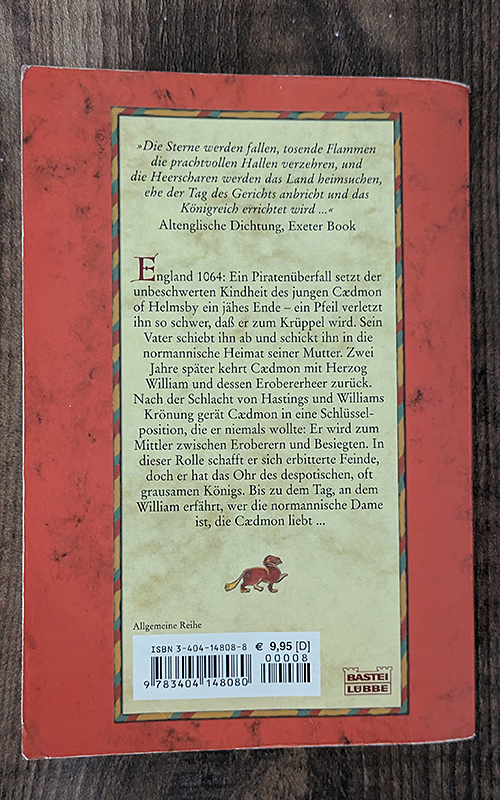 »Die Sterne werden fallen, tosende Flammen
die prachtvollen Hallen verzehren, und
die Heerscharen werden das Land heimsuchen,
ehe der Tag des Gerichts anbricht und das
Königreich errichtet wird ...«
Altenglische Dichtung, Exeter Book
England 1064: Ein Piratenüberfall setzt der
unbeschwerten Kindheit des jungen Cædmon
of Helmsby ein jähes Ende – ein Pfeil verletzt
ihn so schwer, daß er zum Krüppel wird. Sein
Vater schiebt ihn ab und schickt ihn in die
normannische Heimat seiner Mutter. Zwei
Jahre später kehrt Cædmon mit Herzog
William und dessen Erobererheer zurück.
Nach der Schlacht von Hastings und Williams
Krönung gerät Cædmon in eine Schlüssel-
position, die er niemals wollte: Er wird zum
Mittler zwischen Eroberern und Besiegten. In
dieser Rolle schafft er sich erbitterte Feinde,
doch er hat das Ohr des despotischen, oft
grausamen Königs. Bis zu dem Tag, an dem
William erfährt, wer die normannische Dame
ist, die Cædmon liebt ...
Allgemeine Reihe
ISBN 3-404-14808-8 € 9,95 [D]
00008
9 783404 148080
BASTEI
LÜBBE